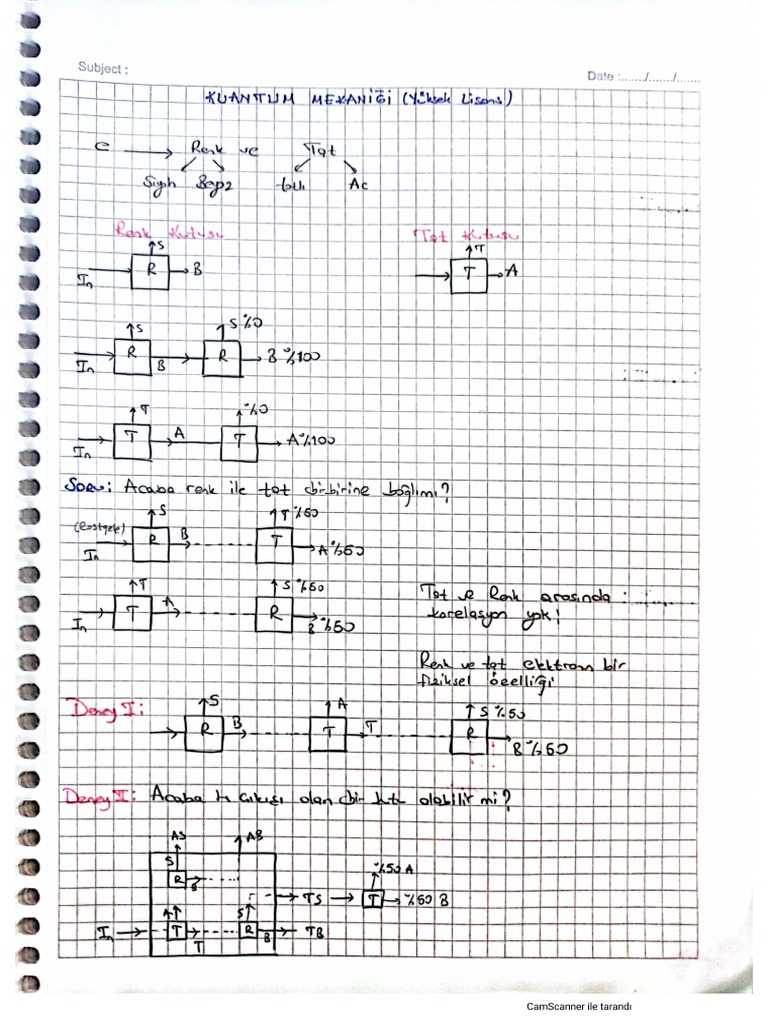 Subject :
Date :....../....../......
KUANTUM MEKANİĞİ (Yüksek Lisans)
e → Renk ve Tat
Siyah Beyaz tatlı Acı
Renk Kutusu
Tat Kutusu
S
T
In R B
T A
S
S %0
In R B R B %100
T
%0
In T A T A %100
Soru: Acaba renk ile tat birbirine bağlımı?
S
T %50
(Rastgele)
In R B T A %50
T
S %50
In T A R B %50
Tat ve Renk arasında
korelasyon yok!
Renk ve tat elektronun bir
fiziksel özelliği
Deney I:
S
A
S %50
R B T T R B %50
Deney II: Acaba 4 çıkışı olan bir kutu olabilir mi?
AS
AB
S
R B
%50 A
TS → T → %50 B
A
S
In T T R B TB
CamScanner ile tarandı